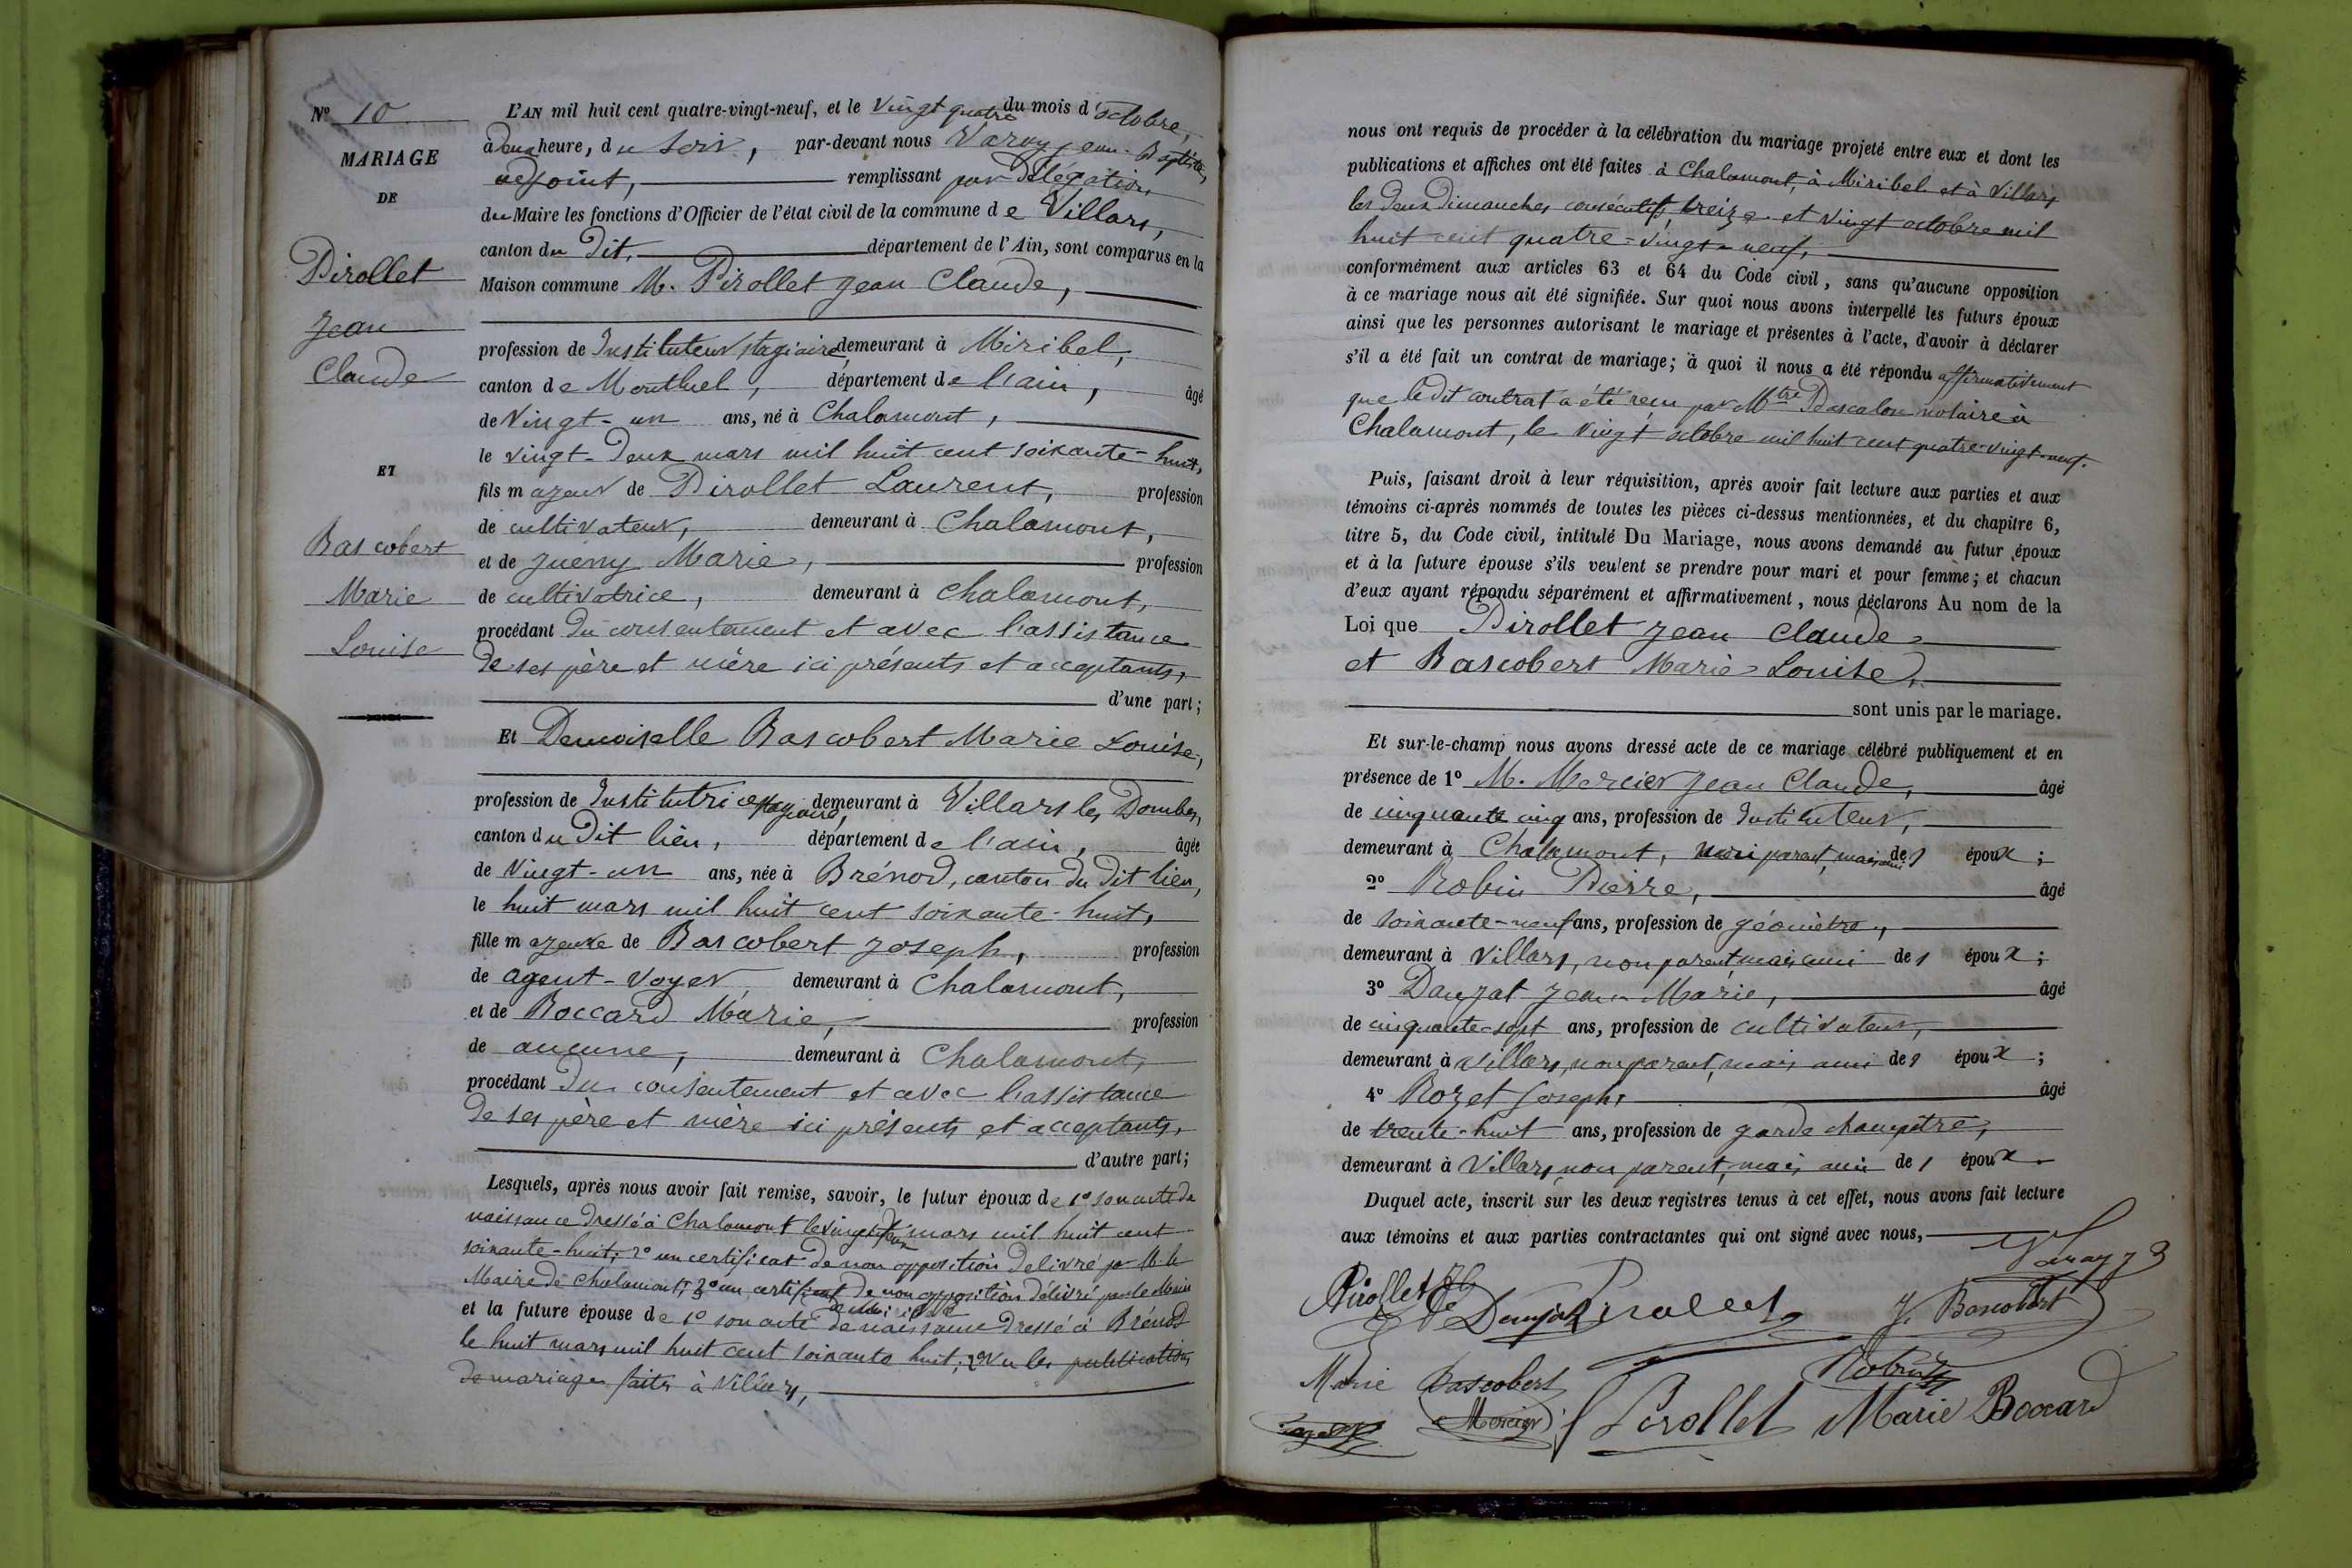 Nº 10
MARIAGE
DE
Pirollet
Jean
Claude
ET
Bascobert
Marie
Louise
L'AN mil huit cent quatre-vingt-neuf, et le vingt quatre du mois d'octobre,
à deux heure, du soir, par-devant nous Varay Jean-Baptiste,
adjoint, remplissant par délégation
du Maire les fonctions d'Officier de l'état civil de la commune de Villars,
canton du dit, département de l'Ain, sont comparus en la
Maison commune M. Pirollet Jean Claude,
profession de Instituteur stagiaire, demeurant à Miribel,
canton de Montluel, département de l'ain, âgé
de vingt-un ans, né à Chalamont,
le vingt-deux mars mil huit cent soixante-huit,
fils majeur de Pirollet Laurent, profession
de cultivateur, demeurant à Chalamont,
et de Jueny Marie, profession
de cultivatrice, demeurant à Chalamont,
procédant du consentement et avec l'assistance
de ses père et mère ici présents et acceptants,
d'une part;
Et Demoiselle Bascobert Marie Louise,
profession de Institutrice stagiaire, demeurant à Villars les Dombes,
canton du dit lieu, département de l'ain, âgée
de vingt-un ans, née à Brénod, canton du dit lieu,
le huit mars mil huit cent soixante-huit,
fille majeure de Bascobert Joseph, profession
de agent-voyer, demeurant à Chalamont,
et de Boccard Marie, profession
de aucune, demeurant à Chalamont,
procédant du consentement et avec l'assistance
de ses père et mère ici présents et acceptants,
d'autre part;
Lesquels, après nous avoir fait remise, savoir, le futur époux de 1º son acte de
naissance dressé à Chalamont le vingt deux mars mil huit cent
soixante-huit; 2º un certificat de non opposition délivré par M. le
Maire de Chalamont; 3º un certificat de non opposition délivré par le Maire
de Miribel
et la future épouse de 1º son acte de naissance dressé à Brénod
le huit mars mil huit cent soixante huit; 2º Vu les publications
de mariage faites à Villars,
nous ont requis de procéder à la célébration du mariage projeté entre eux et dont les
publications et affiches ont été faites à Chalamont, à Miribel et à Villars
les deux Dimanches consécutifs, treize et vingt octobre mil
huit cent quatre-vingt-neuf,
conformément aux articles 63 et 64 du Code civil, sans qu'aucune opposition
à ce mariage nous ait été signifiée. Sur quoi nous avons interpellé les futurs époux
ainsi que les personnes autorisant le mariage et présentes à l'acte, d'avoir à déclarer
s'il a été fait un contrat de mariage; à quoi il nous a été répondu affirmativement
que le dit contrat a été reçu par Mtre Dascalon notaire à
Chalamont, le vingt octobre mil huit cent quatre-vingt-neuf.
Puis, faisant droit à leur réquisition, après avoir fait lecture aux parties et aux
témoins ci-après nommés de toutes les pièces ci-dessus mentionnées, et du chapitre 6,
titre 5, du Code civil, intitulé Du Mariage, nous avons demandé au futur époux
et à la future épouse s'ils veulent se prendre pour mari et pour femme; et chacun
d'eux ayant répondu séparément et affirmativement, nous déclarons Au nom de la
Loi que Pirollet Jean Claude
et Bascobert Marie Louise,
sont unis par le mariage.
Et sur-le-champ nous avons dressé acte de ce mariage célébré publiquement et en
présence de 1º M. Mercier Jean Claude, âgé
de cinquante cinq ans, profession de Instituteur,
demeurant à Chalamont, non parent, mais ami des époux;
2º Robin Pierre, âgé
de soixante-neuf ans, profession de géomètre,
demeurant à Villars, non parent mais ami des époux;
3º Danjat Jean-Marie, âgé
de cinquante-sept ans, profession de cultivateur,
demeurant à Villars, non parent, mais ami des époux;
4º Rozet Joseph, âgé
de trente-huit ans, profession de garde champêtre,
demeurant à Villars, non parent, mais ami des époux.
Duquel acte, inscrit sur les deux registres tenus à cet effet, nous avons fait lecture
aux témoins et aux parties contractantes qui ont signé avec nous,
Varay J B
Pirollet JC Danjat Pirollet J. Bascobert
Marie Bascobert Robin
Mercier Pirollet Marie Boccard